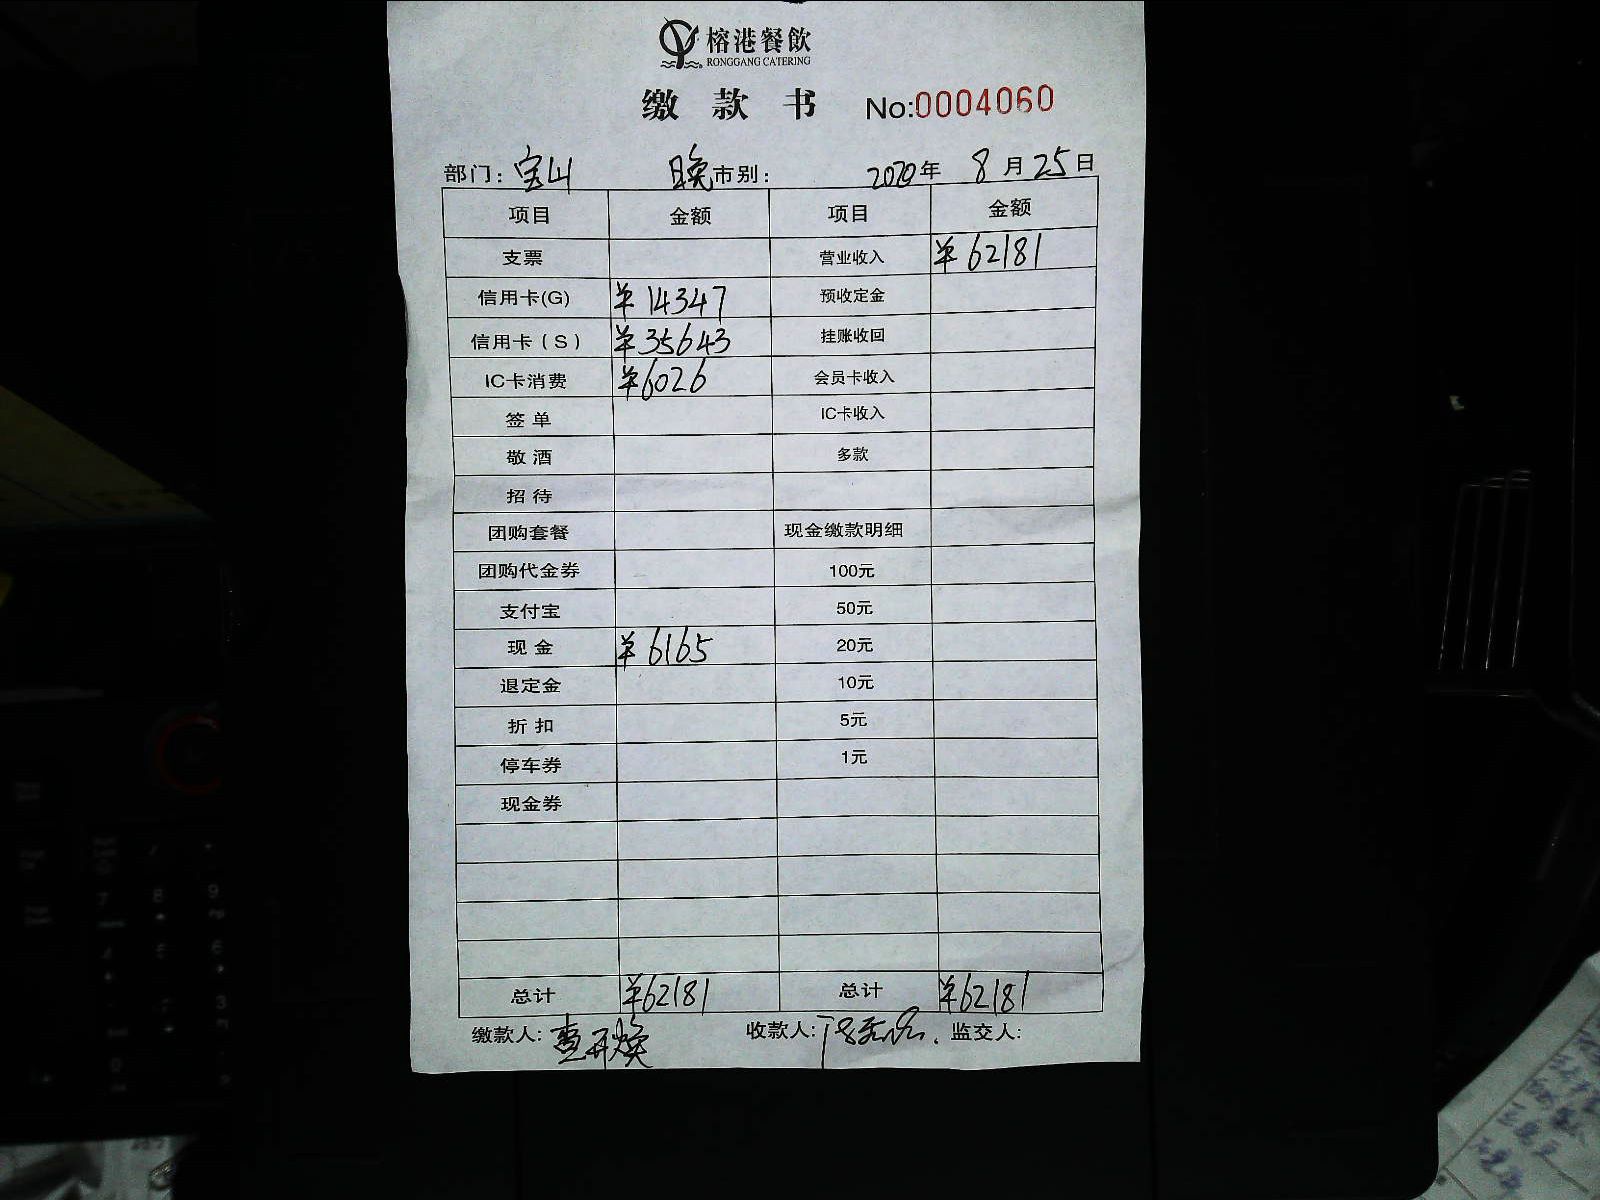 榕港餐飲
RONGGANG CATERING
缴款书 No:0004060
部门: 宝山 晚市别: 2020年 8月25日
项目 金额 项目 金额
支票 营业收入 ¥62181
信用卡(G) ¥14347 预收定金
信用卡(S) ¥35643 挂账收回
IC卡消费 ¥6026 会员卡收入
签单 IC卡收入
敬酒 多款
招待
团购套餐 现金缴款明细
团购代金券 100元
支付宝 50元
现金 ¥6165 20元
退定金 10元
折扣 5元
停车券 1元
现金券
总计 ¥62181 总计 ¥62181
缴款人: 收款人: 监交人: